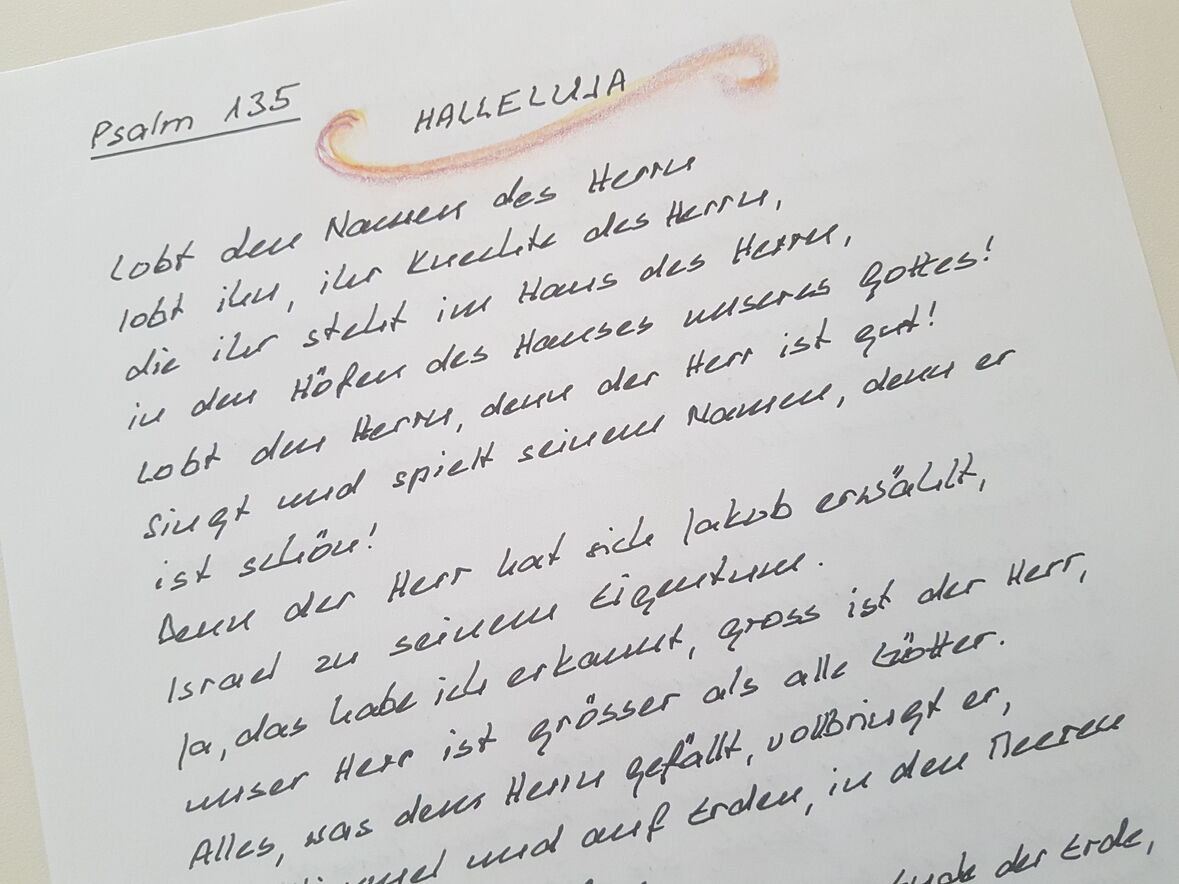 Psalm 135 HALLELUJA
Lobt den Namen des Herrn
lobt ihn, ihr Knechte des Herrn,
die ihr steht im Haus des Herrn,
in den Höfen des Hauses unseres Gottes!
Lobt den Herrn, denn der Herr ist gut!
Singt und spielt seinem Namen, denn er
ist schön!
Denn der Herr hat sich Jakob erwählt,
Israel zu seinem Eigentum.
Ja, das habe ich erkannt, gross ist der Herr,
unser Herr ist grösser als alle Götter.
Alles, was dem Herrn gefällt, vollbringt er,
und auf Erden, in den Meeren
der Erde,